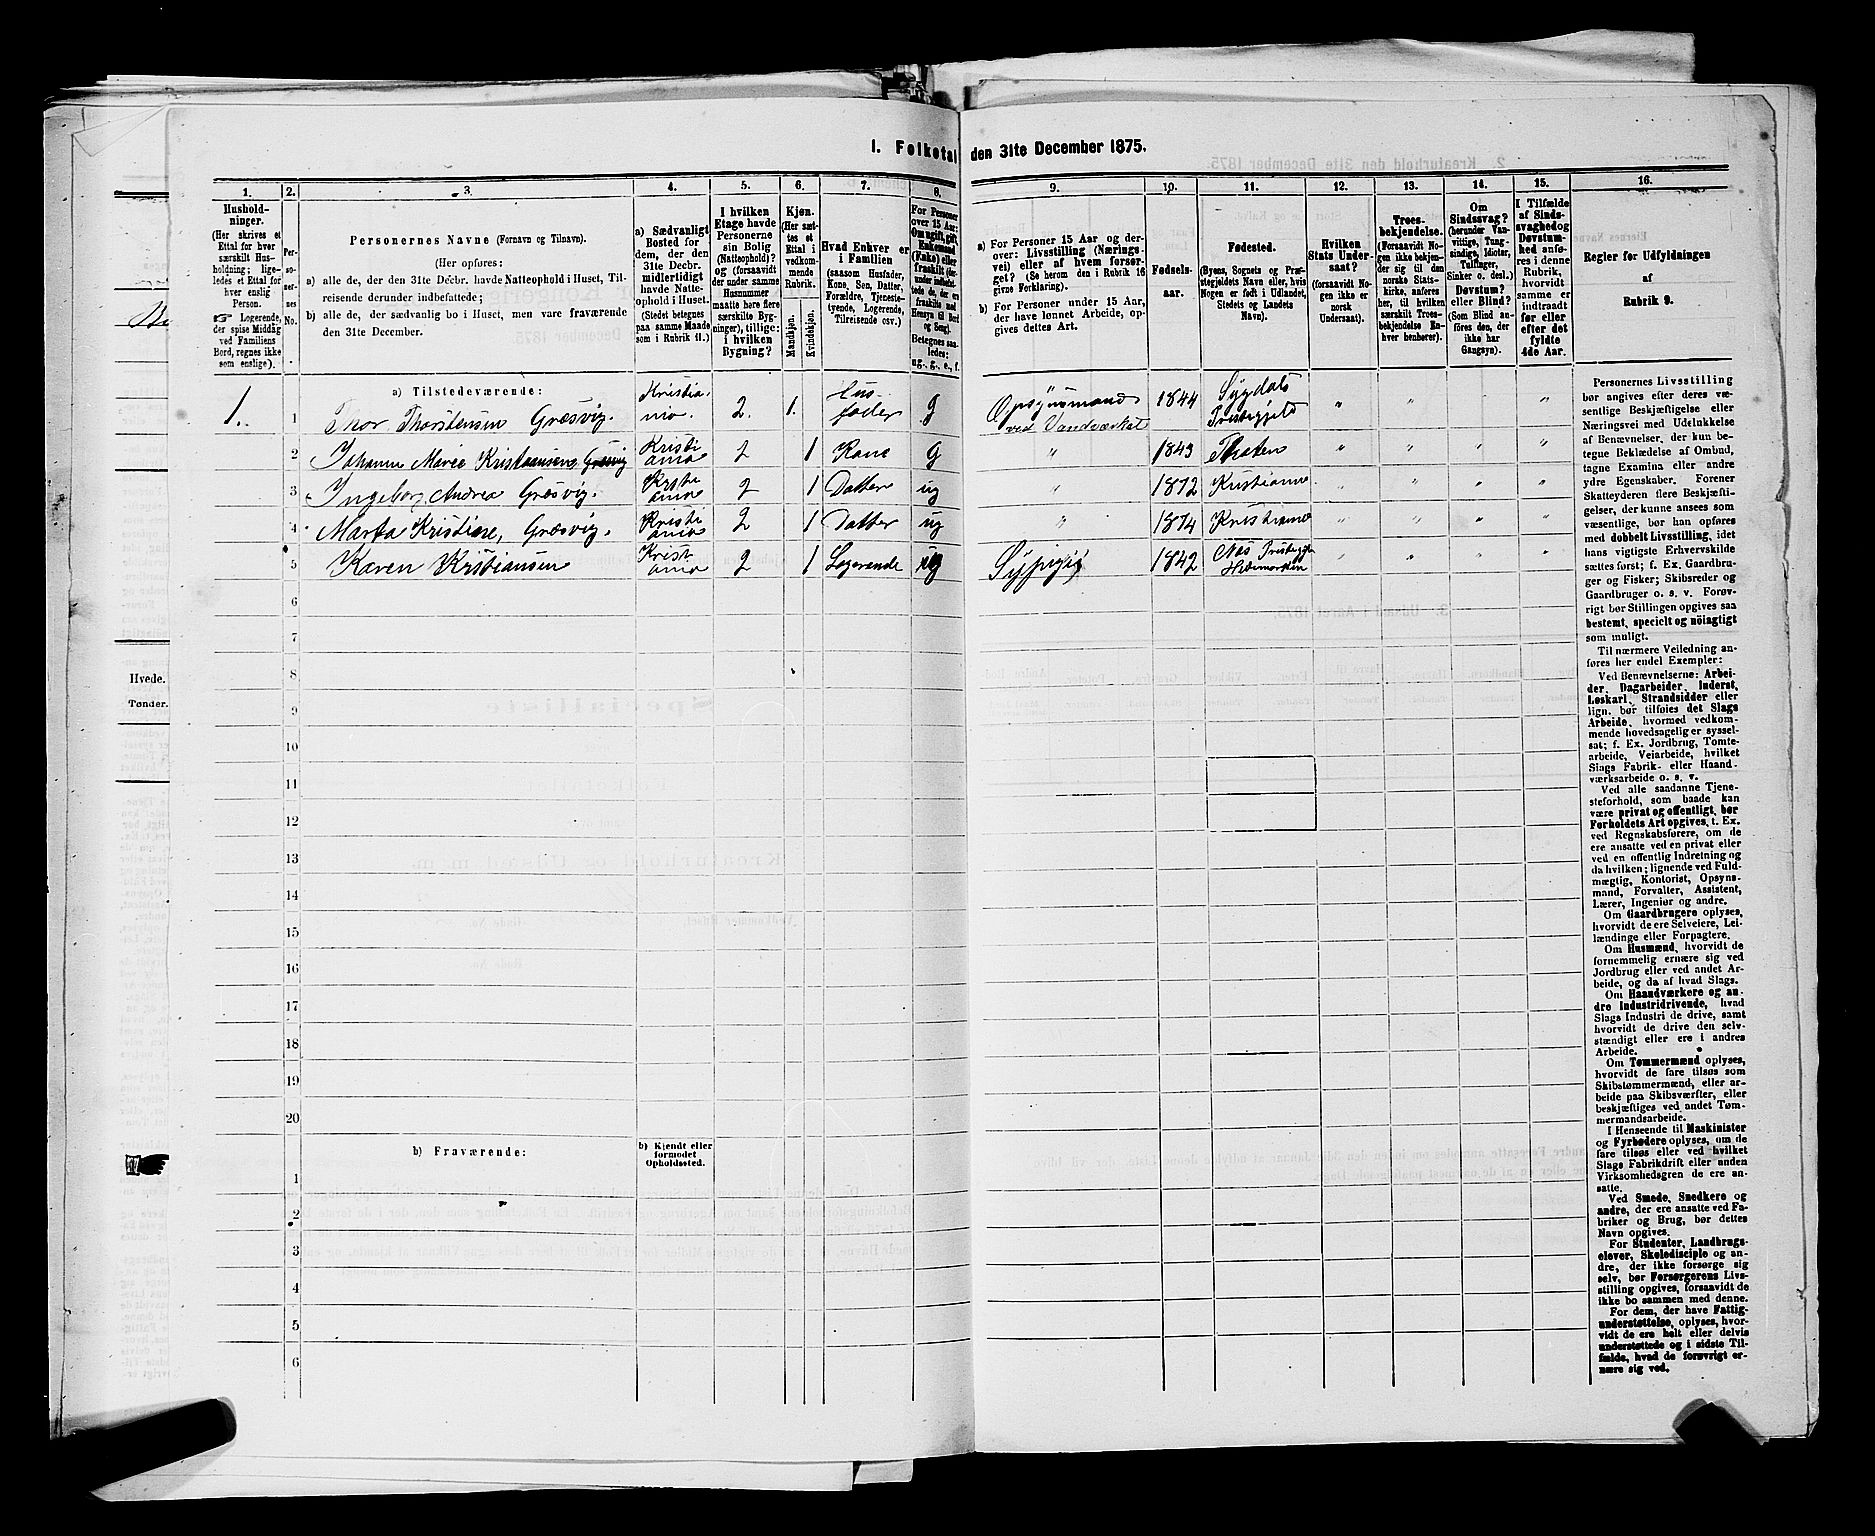 I. Folketal den 31te December 1875.
1.
Husholdninger.
(Her skrives et
Ettal for hver
særskilt Husholdning;
ligeledes et Ettal for
hver enslig
Person.
☞ Logerende,
der spise Middag
ved Familiens
Bord, regnes ikke
som enslige).
2.
Personernes
No.
3.
Personernes Navne (Fornavn og Tilnavn).
(Her opføres:
a) alle de, der den 31te Decbr. havde Natteophold i Huset, Tilreisende
derunder indbefattede;
b) alle de, der sædvanlig bo i Huset, men vare fraværende
den 31te December.
4.
a) Sædvanligt
Bosted for
dem, der den
31te Decbr.
midlertidigt
havde Natteophold
i Huset.
(Stedet betegnes
paa samme Maade
som i Rubrik 11.)
5.
I hvilken
Etage havde
Personerne
sin Bolig
(Natteophold)?
og (forsaavidt
der under samme
Husnummer
maatte høre flere
særskilte Bygninger),
tillige:
i hvilken
Bygning?
6.
Kjøn.
(Her sættes
et
Ettal i
vedkommende
Rubrik.
Mandskjøn.
Kvindekjøn.
7.
Hvad Enhver er
i Familien
(saasom Husfader,
Kone, Søn, Datter,
Forældre, Tjenestetyende,
Logerende,
Tilreisende osv.)
8.
For Personer
over 15 Aar:
Om ugift, gift,
Enkemand
(Kone) eller
fraskilt
Betegnes saaledes:
ug., g., e., f.
9.
a) For Personer 15 Aar og derover:
Livsstilling (Næringsvei)
eller af hvem forsørget?
(Se herom den i Rubrik 16
givne Forklaring).
b) For Personer under 15 Aar,
der have lønnet Arbeide, opgives
dettes Art.
10.
Fødselsaar.
11.
Fødested.
(Byens, Sognets og Præstegjeldets
Navn eller, hvis
Nogen er født i Udlandet,
Stedets og Landets
Navn).
12.
Hvilken
Stats Undersaat?
(forsaavidt Nogen
ikke er
norsk
Undersaat).
13.
Troesbekjendelse.
(Forsaavidt Nogen
ikke bekjender
sig til den
norske Statskirke,
anføres
her, til hvilken
særskilt Troesbekjendelse
Enhver
henhører).
14.
Om
Sindssvag?
(herunder Vanvittige,
Tungsindige,
Idioter,
Tullinger,
Sinker o. desl.)
Døvstum?
eller Blind?
(Som Blind anføres
den, der
ikke har
Gangsyn).
15.
I Tilfælde
af Sindssvaghed
og
Døvstumhed
anføres
i denne
Rubrik,
hvorvidt
samme er
indtraadt
før eller
efter det
fyldte
4de Aar.
16.
Regler for Udfyldningen
af
Rubrik 9.
a) Tilstedeværende:
1. 1 Thor Thorstensen Græsvig. Kristiania. 2. 1. Husfader g Opsynsmand ved Vandværket 1844 Sygdals Prestegjeld " " " "
2 Johanne Marie Kristiansen Græsvig Kristiania 2 1 Kone g " 1843 " " " "
3 Ingeborg Andrea Græsvig. Kristiania 2 1 Datter ug " 1872 Kristiania " " " "
4 Marta Kristine, Græsvig. Kristiania 2 1 Datter ug " 1874 Kristiania " " " "
5 Karen Kristiansen Kristiania 2 1 Logerende ug Sypige 1842 Næs Prestegjeld Hedemarken " " " "
6
7
8
9
10
11
12
13
14
15
16
17
18
19
20
b) Fraværende:
b) Kjendt eller
formodet
Opholdssted.
1
2
3
4
5
6
Personernes Livsstilling
bør angives efter deres væsentlige
Beskjæftigelse eller
Næringsvei med Udelukkelse
af Benævnelser, der kun betegne
Beklædelse af Ombud,
tagne Examina eller andre
ydre Egenskaber. Forener
Skatteyderen flere Beskjæftigelser,
der kunne ansees som
væsentlige, bør han opføres
med dobbelt Livsstilling, idet
hans vigtigste Erhvervskilde
sættes først; f. Ex. Gaardbruger
og Fisker; Skibsreder og
Gaardbruger o. s. v. Forøvrigt
bør Stillingen opgives saa
bestemt, specielt og nöiagtigt
som muligt.
Til nærmere Veiledning anføres
her endel Exempler:
Ved Benævnelserne: Arbeider,
Dagarbeider, Inderst,
Løskarl, Strandsidder eller
lign. bør tilføies det Slags
Arbeide, hvormed vedkommende
hovedsagelig er sysselsat;
f. Ex. Jordbrug, Tomtearbeide,
Veiarbeide, hvilket
Slags Fabrik- eller Haandværksarbeide
o. s. v.
Ved alle saadanne Tjenesteforhold,
som baade kan
være privat og offentligt, bør
Forholdets Art opgives, t. Ex.
ved Regnskabsførere, om de
ere ansatte ved en privat eller
ved en offentlig Indretning og
da hvilken; lignende ved Fuldmægtig,
Kontorist, Opsynsmand,
Forvalter, Assistent,
Lærer, Ingeniør og andre.
Om Gaardbrugere oplyses,
hvorvidt de ere Selveiere, Leilændinge
eller Forpagtere.
Om Husmænd, hvorvidt de
fornemmelig ernære sig ved
Jordbrug eller ved andet Arbeide,
og da af hvad Slags.
Om Haandværkere og andre
Industridrivende, hvad
Slags Industri de drive, samt
hvorvidt de drive den selvstændigt
eller ere i andres
Arbeide.
Om Tømmermænd oplyses,
hvorvidt de fare tilsøs som
Skibstømmermænd, eller arbeide
paa Skibsværfter, eller
beskjæftiges ved andet Tømmermandsarbeide.
I Henseende til Maskinister
og Fyrbødere oplyses, om de
fare tilsøs eller ved hvilket
Slags Fabrikdrift eller anden
Virksomhedsgren de ere ansatte.
Ved Smede, Snedkere og
andre, der ere ansatte ved Fabriker
og Brug, bør dettes
Navn opgives.
For Studenter, Landbrugselever,
Skoledisciple og andre,
der ikke forsørge sig
selv, bør Forsørgerens Livsstilling
opgives, forsaavidt de
ikke bo sammen med denne.
For dem, der have Fattigunderstøttelse,
oplyses, hvorvidt
de ere helt eller delvis
understøttede og i sidste Tilfælde,
hvad de forøvrigt ernære
sig ved.
Hvede.
Tønder.